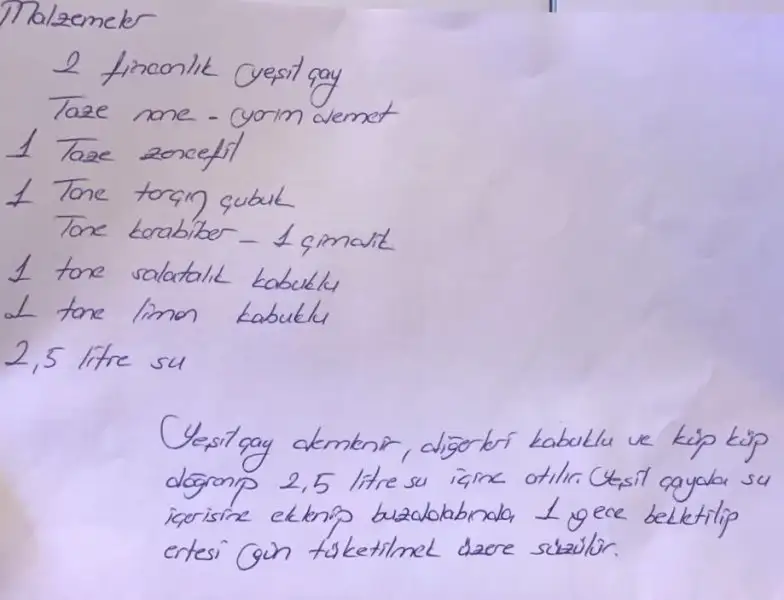 Malzemeler
2 fincanlık yeşil çay
Taze nane - yarım demet
1 Taze zencefil
1 Tane tarçın çubuk
Tane karabiber - 1 çimdik
1 tane salatalık kabuklu
1 tane limon kabuklu
2,5 litre su
Yeşil çay demlenir, diğerleri kabuklu ve küp küp
doğranıp 2,5 litre su içine atılır. Yeşil çayda su
içerisine eklenip buzdolabında 1 gece bekletilip
ertesi gün tüketilmek üzere süzülür.